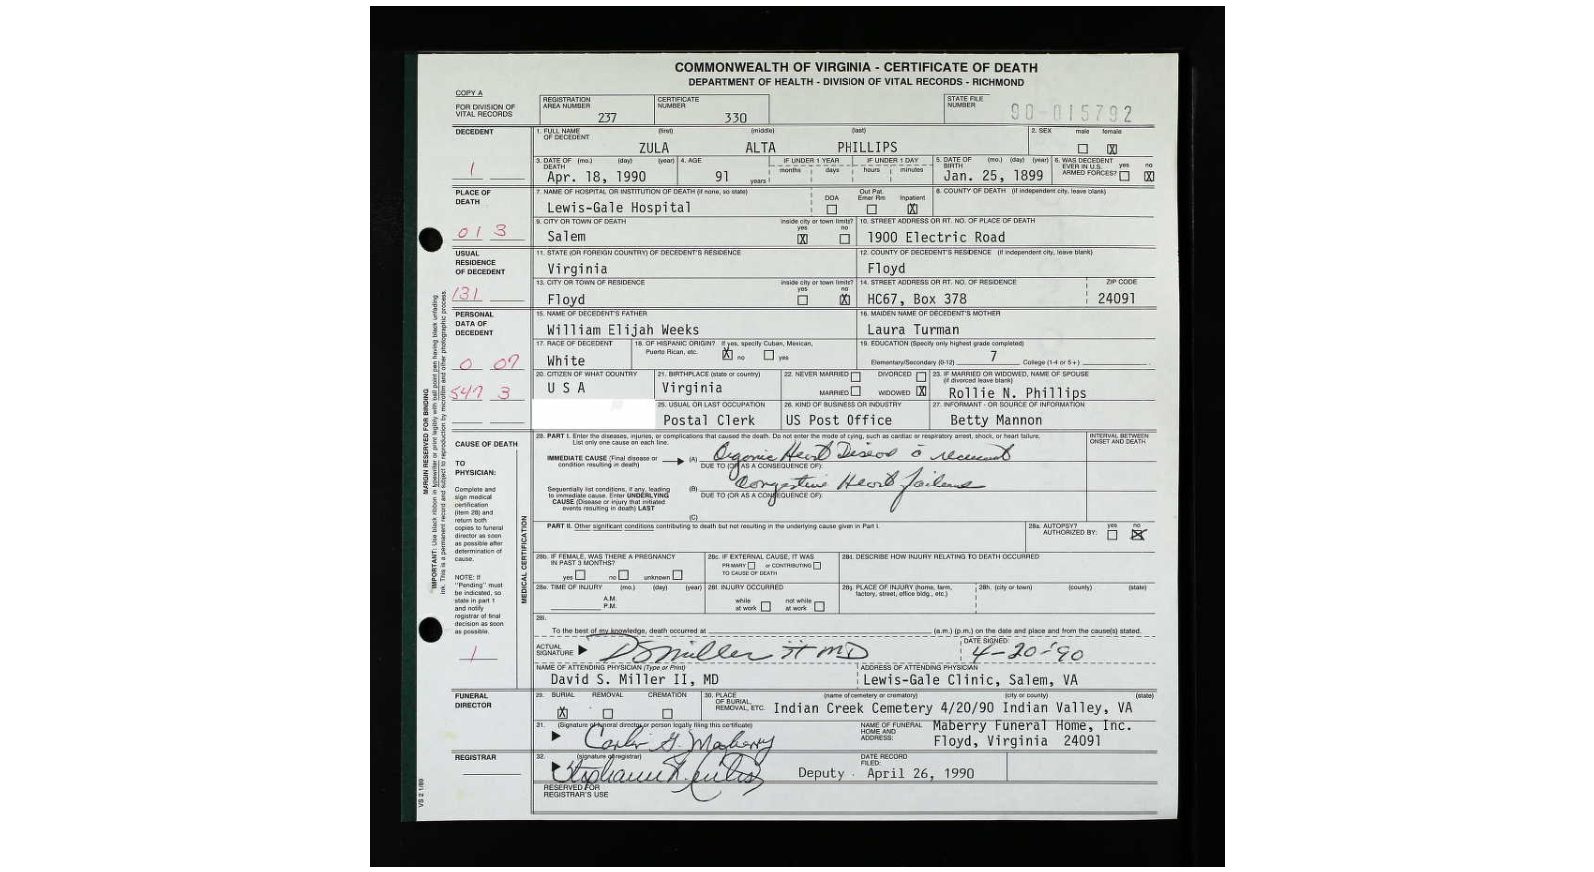 COMMONWEALTH OF VIRGINIA - CERTIFICATE OF DEATH
DEPARTMENT OF HEALTH - DIVISION OF VITAL RECORDS - RICHMOND
COPY A
FOR DIVISION OF VITAL RECORDS
REGISTRATION AREA NUMBER 237
CERTIFICATE NUMBER 330
STATE FILE NUMBER 90-015792
DECEDENT
1
1. FULL NAME OF DECEDENT (first) (middle) (last)
ZULA ALTA PHILLIPS
2. SEX male female X
3. DATE OF DEATH (mo.) (day) (year)
Apr. 18, 1990
4. AGE 91 years
IF UNDER 1 YEAR months days
IF UNDER 1 DAY hours minutes
5. DATE OF BIRTH (mo.) (day) (year)
Jan. 25, 1899
6. WAS DECEDENT EVER IN U.S. ARMED FORCES? yes no X
PLACE OF DEATH
01 3
7. NAME OF HOSPITAL OR INSTITUTION OF DEATH (if none, so state)
Lewis-Gale Hospital
DOA Out Pat. Emer Rm Inpatient X
8. COUNTY OF DEATH (if independent city, leave blank)
9. CITY OR TOWN OF DEATH
Salem
inside city or town limits? yes X no
10. STREET ADDRESS OR RT. NO. OF PLACE OF DEATH
1900 Electric Road
USUAL RESIDENCE OF DECEDENT
131
11. STATE (OR FOREIGN COUNTRY) OF DECEDENT'S RESIDENCE
Virginia
12. COUNTY OF DECEDENT'S RESIDENCE (if independent city, leave blank)
Floyd
13. CITY OR TOWN OF RESIDENCE
Floyd
inside city or town limits? yes no X
14. STREET ADDRESS OR RT. NO. OF RESIDENCE
HC67, Box 378
ZIP CODE
24091
PERSONAL DATA OF DECEDENT
0 07
547 3
15. NAME OF DECEDENT'S FATHER
William Elijah Weeks
16. MAIDEN NAME OF DECEDENT'S MOTHER
Laura Turman
17. RACE OF DECEDENT
White
18. OF HISPANIC ORIGIN? If yes, specify Cuban, Mexican, Puerto Rican, etc. X no yes
19. EDUCATION (Specify only highest grade completed)
Elementary/Secondary (0-12) 7 College (1-4 or 5+)
20. CITIZEN OF WHAT COUNTRY
U S A
21. BIRTHPLACE (state or country)
Virginia
22. NEVER MARRIED DIVORCED
MARRIED WIDOWED X
23. IF MARRIED OR WIDOWED, NAME OF SPOUSE (if divorced leave blank)
Rollie N. Phillips
25. USUAL OR LAST OCCUPATION
Postal Clerk
26. KIND OF BUSINESS OR INDUSTRY
US Post Office
27. INFORMANT - OR SOURCE OF INFORMATION
Betty Mannon
MARGIN RESERVED FOR BINDING
IMPORTANT: Use black ribbon in typewriter or print legibly with ball point pen having black unfading ink. This is a permanent record and subject to reproduction by microfilm and other photographic process.
CAUSE OF DEATH
TO PHYSICIAN:
Complete and sign medical certification (item 28) and return both copies to funeral director as soon as possible after determination of cause.
NOTE: If "Pending" must be indicated, so state in part 1 and notify registrar of final decision as soon as possible.
1
MEDICAL CERTIFICATION
28. PART I. Enter the diseases, injuries, or complications that caused the death. Do not enter the mode of dying, such as cardiac or respiratory arrest, shock, or heart failure.
List only one cause on each line.
INTERVAL BETWEEN ONSET AND DEATH
IMMEDIATE CAUSE (Final disease or condition resulting in death)
(A) Organic Heart Disease c recurrent
DUE TO (OR AS A CONSEQUENCE OF):
Sequentially list conditions, if any, leading to immediate cause. Enter UNDERLYING CAUSE (Disease or injury that initiated events resulting in death) LAST
(B) Congestive Heart failure
DUE TO (OR AS A CONSEQUENCE OF):
(C)
PART II. Other significant conditions contributing to death but not resulting in the underlying cause given in Part I.
28a. AUTOPSY? AUTHORIZED BY: yes no X
28b. IF FEMALE, WAS THERE A PREGNANCY IN PAST 3 MONTHS?
yes no unknown
28c. IF EXTERNAL CAUSE, IT WAS
PRIMARY or CONTRIBUTING
TO CAUSE OF DEATH
28d. DESCRIBE HOW INJURY RELATING TO DEATH OCCURRED
28e. TIME OF INJURY (mo.) (day) (year)
A.M.
P.M.
28f. INJURY OCCURRED
while at work not while at work
28g. PLACE OF INJURY (home, farm, factory, street, office bldg., etc.)
28h. (city or town) (county) (state)
28i.
To the best of my knowledge, death occurred at (a.m.) (p.m.) on the date and place and from the cause(s) stated.
ACTUAL SIGNATURE DS Miller II MD
DATE SIGNED: 4-20-90
NAME OF ATTENDING PHYSICIAN (Type or Print)
David S. Miller II, MD
ADDRESS OF ATTENDING PHYSICIAN
Lewis-Gale Clinic, Salem, VA
FUNERAL DIRECTOR
29. BURIAL X REMOVAL CREMATION
30. PLACE OF BURIAL, REMOVAL, ETC. (name of cemetery or crematory) (city or county) (state)
Indian Creek Cemetery 4/20/90 Indian Valley, VA
31. (Signature of funeral director or person legally filing this certificate)
Carlin G. Maberry
NAME OF FUNERAL HOME AND ADDRESS:
Maberry Funeral Home, Inc.
Floyd, Virginia 24091
REGISTRAR
32. (signature of registrar)
Deputy
DATE RECORD FILED:
April 26, 1990
RESERVED FOR REGISTRAR'S USE
VS 2 1/89